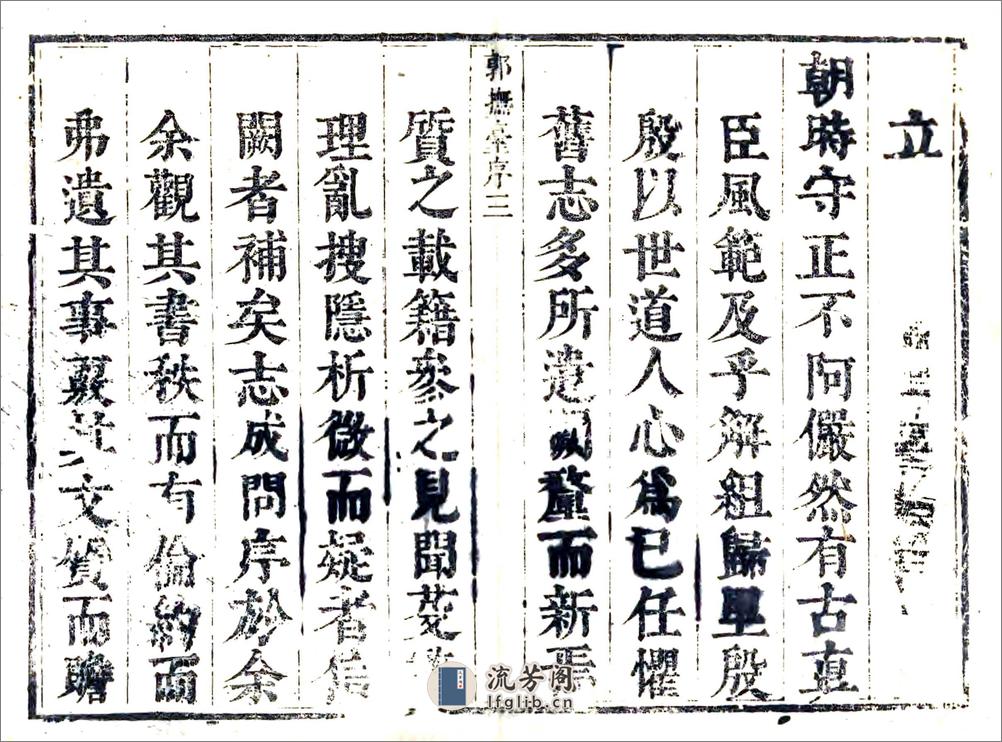 立
朝時守正不阿儼然有古直
臣風範及乎解組歸里殷
殷以世道人心為已任懼
舊志多所遺釐而新焉
郭撫臺序三
質之載籍參之見聞芟
理亂搜隱析微而疑者信
闕者補矣志成問序於余
余觀其書秩而有倫約而
弗遺其事覈其文質而贍
流芳阁
lfglib.cn